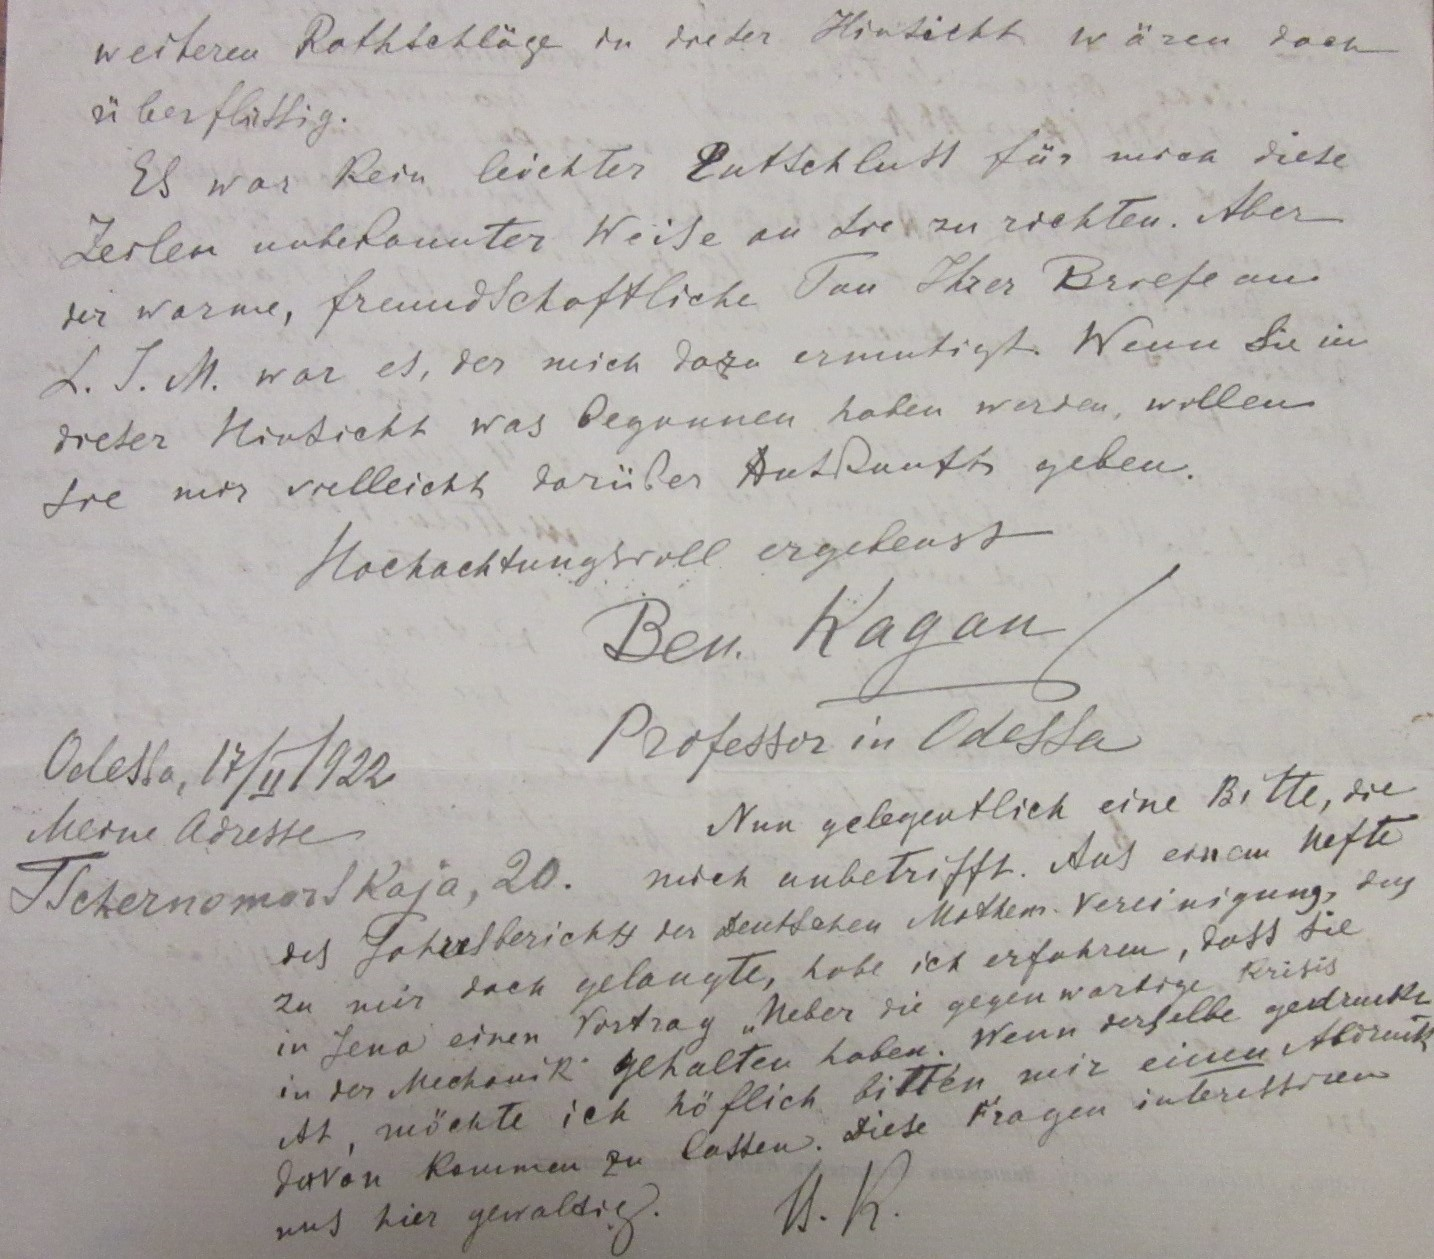 weiteren Rathschläge in dieser Hinsicht wären doch
überflüssig.
Es war kein leichter Entschluss für mich diese
Zeilen unbekannter Weise an Sie zu richten. Aber
der warme, freundschaftliche Ton Ihrer Briefe an
L. I. M. war es, der mich dazu ermutigt. Wenn Sie in
dieser Hinsicht was begonnen haben werden, wollen
Sie mir vielleicht darüber Auskunft geben.
Hochachtungsvoll ergebenst
Ben. Kagan
Professor in Odessa
Odessa, 17/II 1922
Meine Adresse
Tschernomorskaja, 20.
Nun gelegentlich eine Bitte, die
mich anbetrifft. Aus einem Hefte
des Jahresberichts der Deutschen Mathem. Vereinigung, das
zu mir doch gelangte, habe ich erfahren, dass Sie
in Jena einen Vortrag „Ueber die gegenwartige Krisis
in der Mechanik" gehalten haben. Wenn derselbe gedruckt
ist, möchte ich höflich bitten mir einen Abdruck
davon kommen zu lassen. Diese Fragen interessiren
uns hier gewaltig.
B. K.